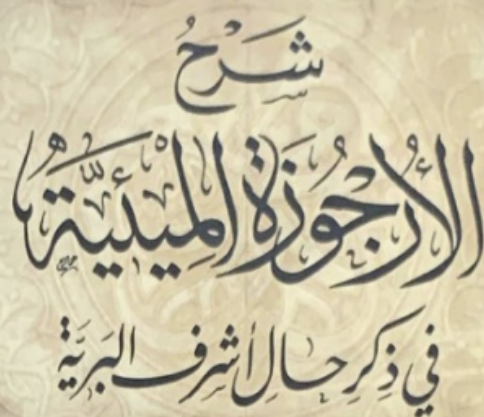 شَرْحُ
الأُرْجُوزَةِ المِيْئِيَّةِ
في ذِكرِ حَالِ أشرفِ البَرِيَّةِ